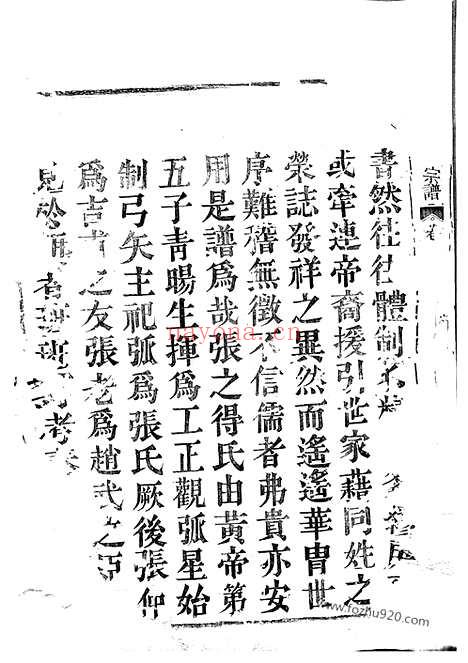 宗譜 卷
書然往往體制
或牽連帝裔援引世家藉同姓之
榮誌發祥之異然而遙遙華冑世
序難稽無徵不信儒者弗貴亦安
用是譜為哉張之得氏由黃帝第
五子青暘生揮為工正觀弧星始
制弓矢主祀弧為張氏厥後張仲
為吉甫之友張老為趙武之臣
見於 者班班 考
nayona.cn
www.fozhu920.com